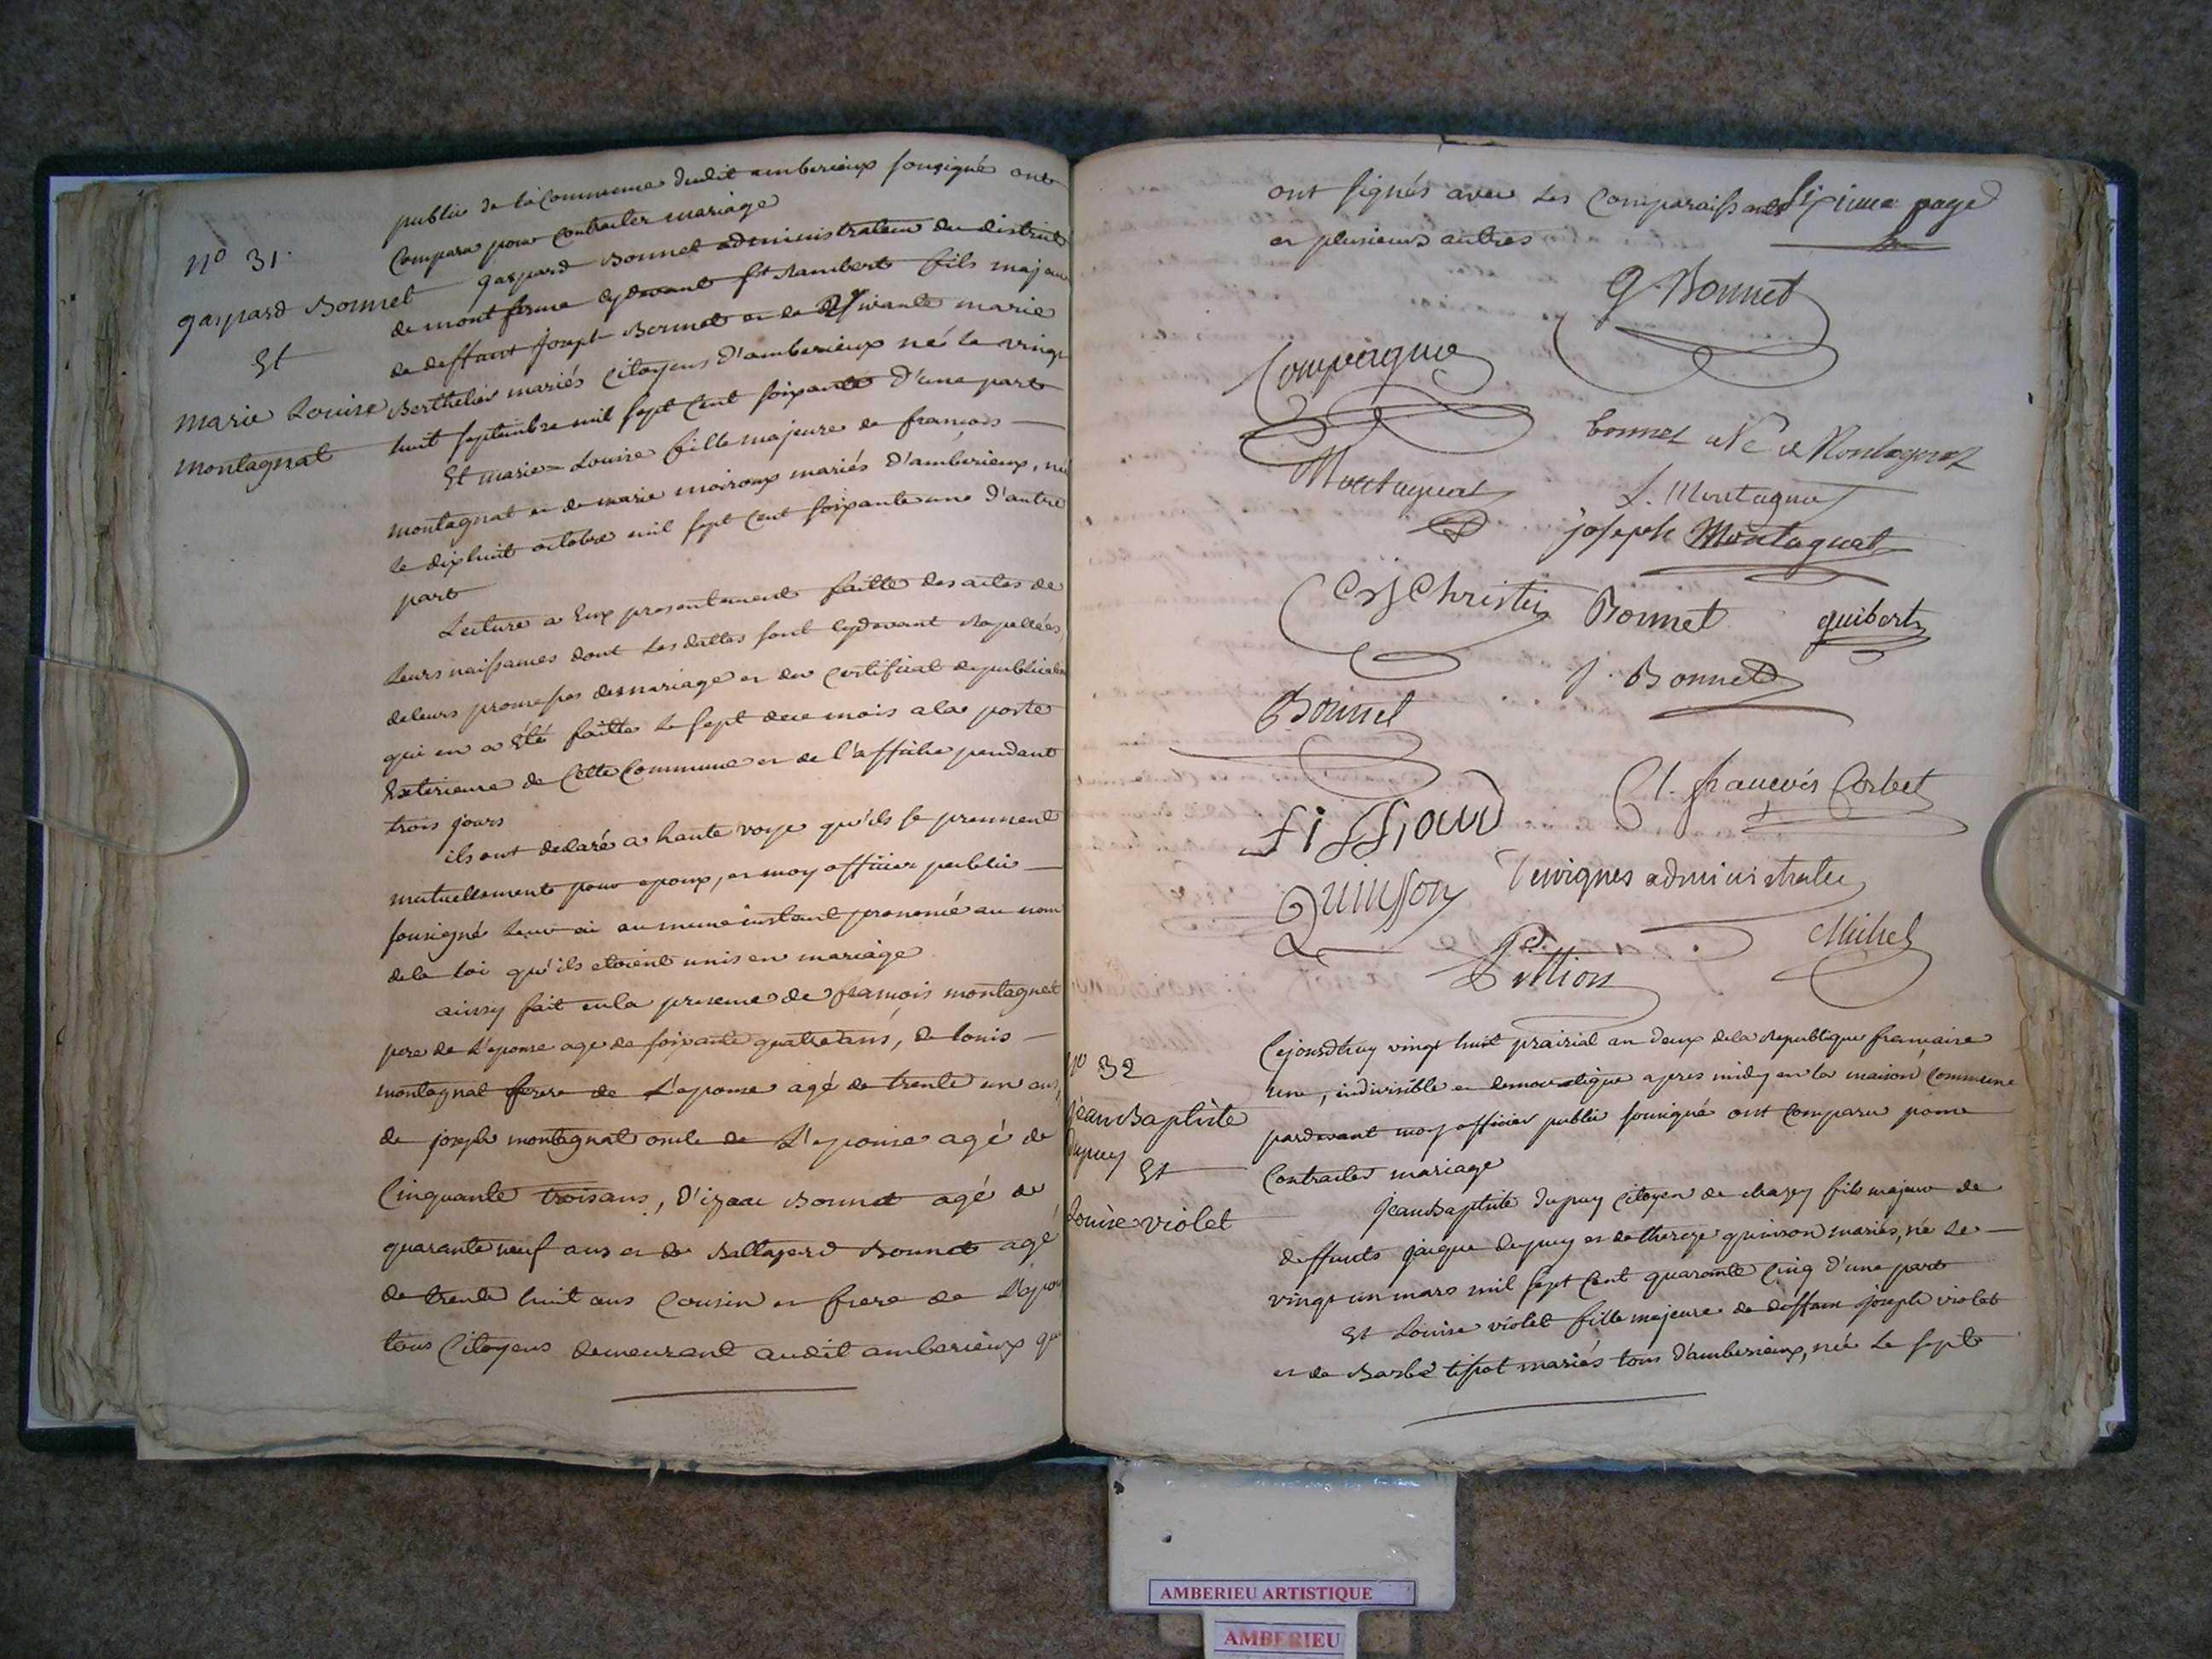 publie de la Commune dudit amberieux sousigné ont
Comparu pour Contracter mariage
nº 31.
gaspard Bonnet
Et
marie Louise
montagnat
gaspard Bonnet administrateur du district
de mont ferme cydevant st Rambert fils majeur
de deffunt joseph Bonnet et de vivante marie
Berthelier mariés Citoyens d'amberieux né le vingt
huit septembre mil sept Cent soixante d'une part
Et marie-Louise fille majeure de francois
montagnat et de marie moiroux mariés d'amberieux, né
le dixhuit octobre mil sept Cent soixante une d'autre
part
Lecture a Eux presentement faitte des actes de
Leurs naissances dont Les dattes sont cydevant Rapellées,
de leurs promesses de mariage et du Certificat de publication
qui en a Eté faitte Le sept de ce mois a la porte
Exterieure de Cette Commune et de l'affiche pendant
trois jours
ils ont declaré a haute voye qu'ils se prennent
mutuellement pour epoux, et moy officier public
sousigné leur ai au meme instant prononcé au nom
de la loi qu'ils etoient unis en mariage
ainsy fait en la presence de francois montagnat
pere de L'epouse age de soixante quatre ans, de louis
montagnat frere de L'epouse agé de trente un ans,
de joseph montagnat oncle de L'epouse agé de
Cinquante trois ans, d'izaac Bonnet agé de
quarante neuf ans et de Baltazard Bonnet agé
de trente huit ans Cousin et frere de L'epoux
tous Citoyens demeurant audit amberieux qui
ont signés avec Les Comparaissants Sixieme page
et plusieurs autres
G. Bonnet
Compagnie
bonnet née Montagnat
Montagnat
L. Montagnat
joseph Montagnat
Christin
Bonnet
guibert
J. Bonnet
Bonnet
Cl. francois Corbet
fissiaud
Quinsson
Tenignes administrateur
Michel
Pollion
nº 32
jean Baptiste
dupuy
Et
Louise violet
Cejourdhuy vingt huit prairial an deux de la Republique francaise
une, indivisible et democratique apres midy en la maison Commune
pardevant moy officier public sousigné ont Comparu pour
Contracter mariage
jean Baptiste dupuy Citoyen de chazey fils majeur de
deffunts jaique dupuy et de thereze quinson mariés, né Le
vingt un mars mil sept Cent quarante Cinq d'une part
Et Louise violet fille majeure de deffunt joseph violet
et de Barbe tissot mariés tous d'amberieux, née Le sept
AMBERIEU ARTISTIQUE
AMBERIEU